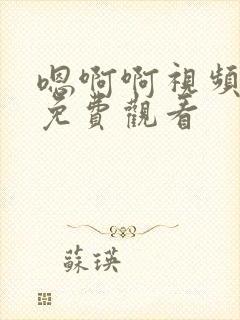 嗯啊啊視頻
免費觀看
蘇瑛